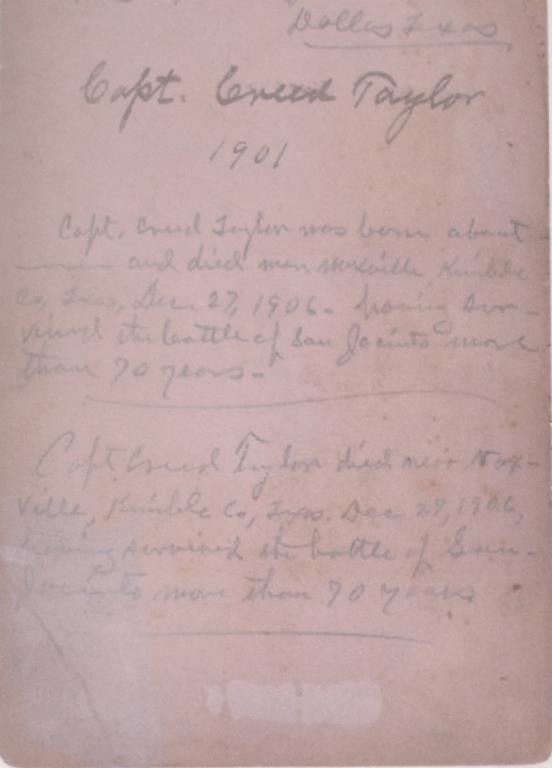 Dallas Texas
Capt. Creed Taylor
1901
Capt. Creed Taylor was born about
and died near Noxville, Kimble
Co, Texas, Dec. 27, 1906. Having sur-
vived the battle of San Jacinto more
than 70 years.
Capt Creed Taylor died near Nox-
ville, Kimble Co, Texas. Dec 27, 1906,
having survived the battle of San-
Jacinto more than 70 years